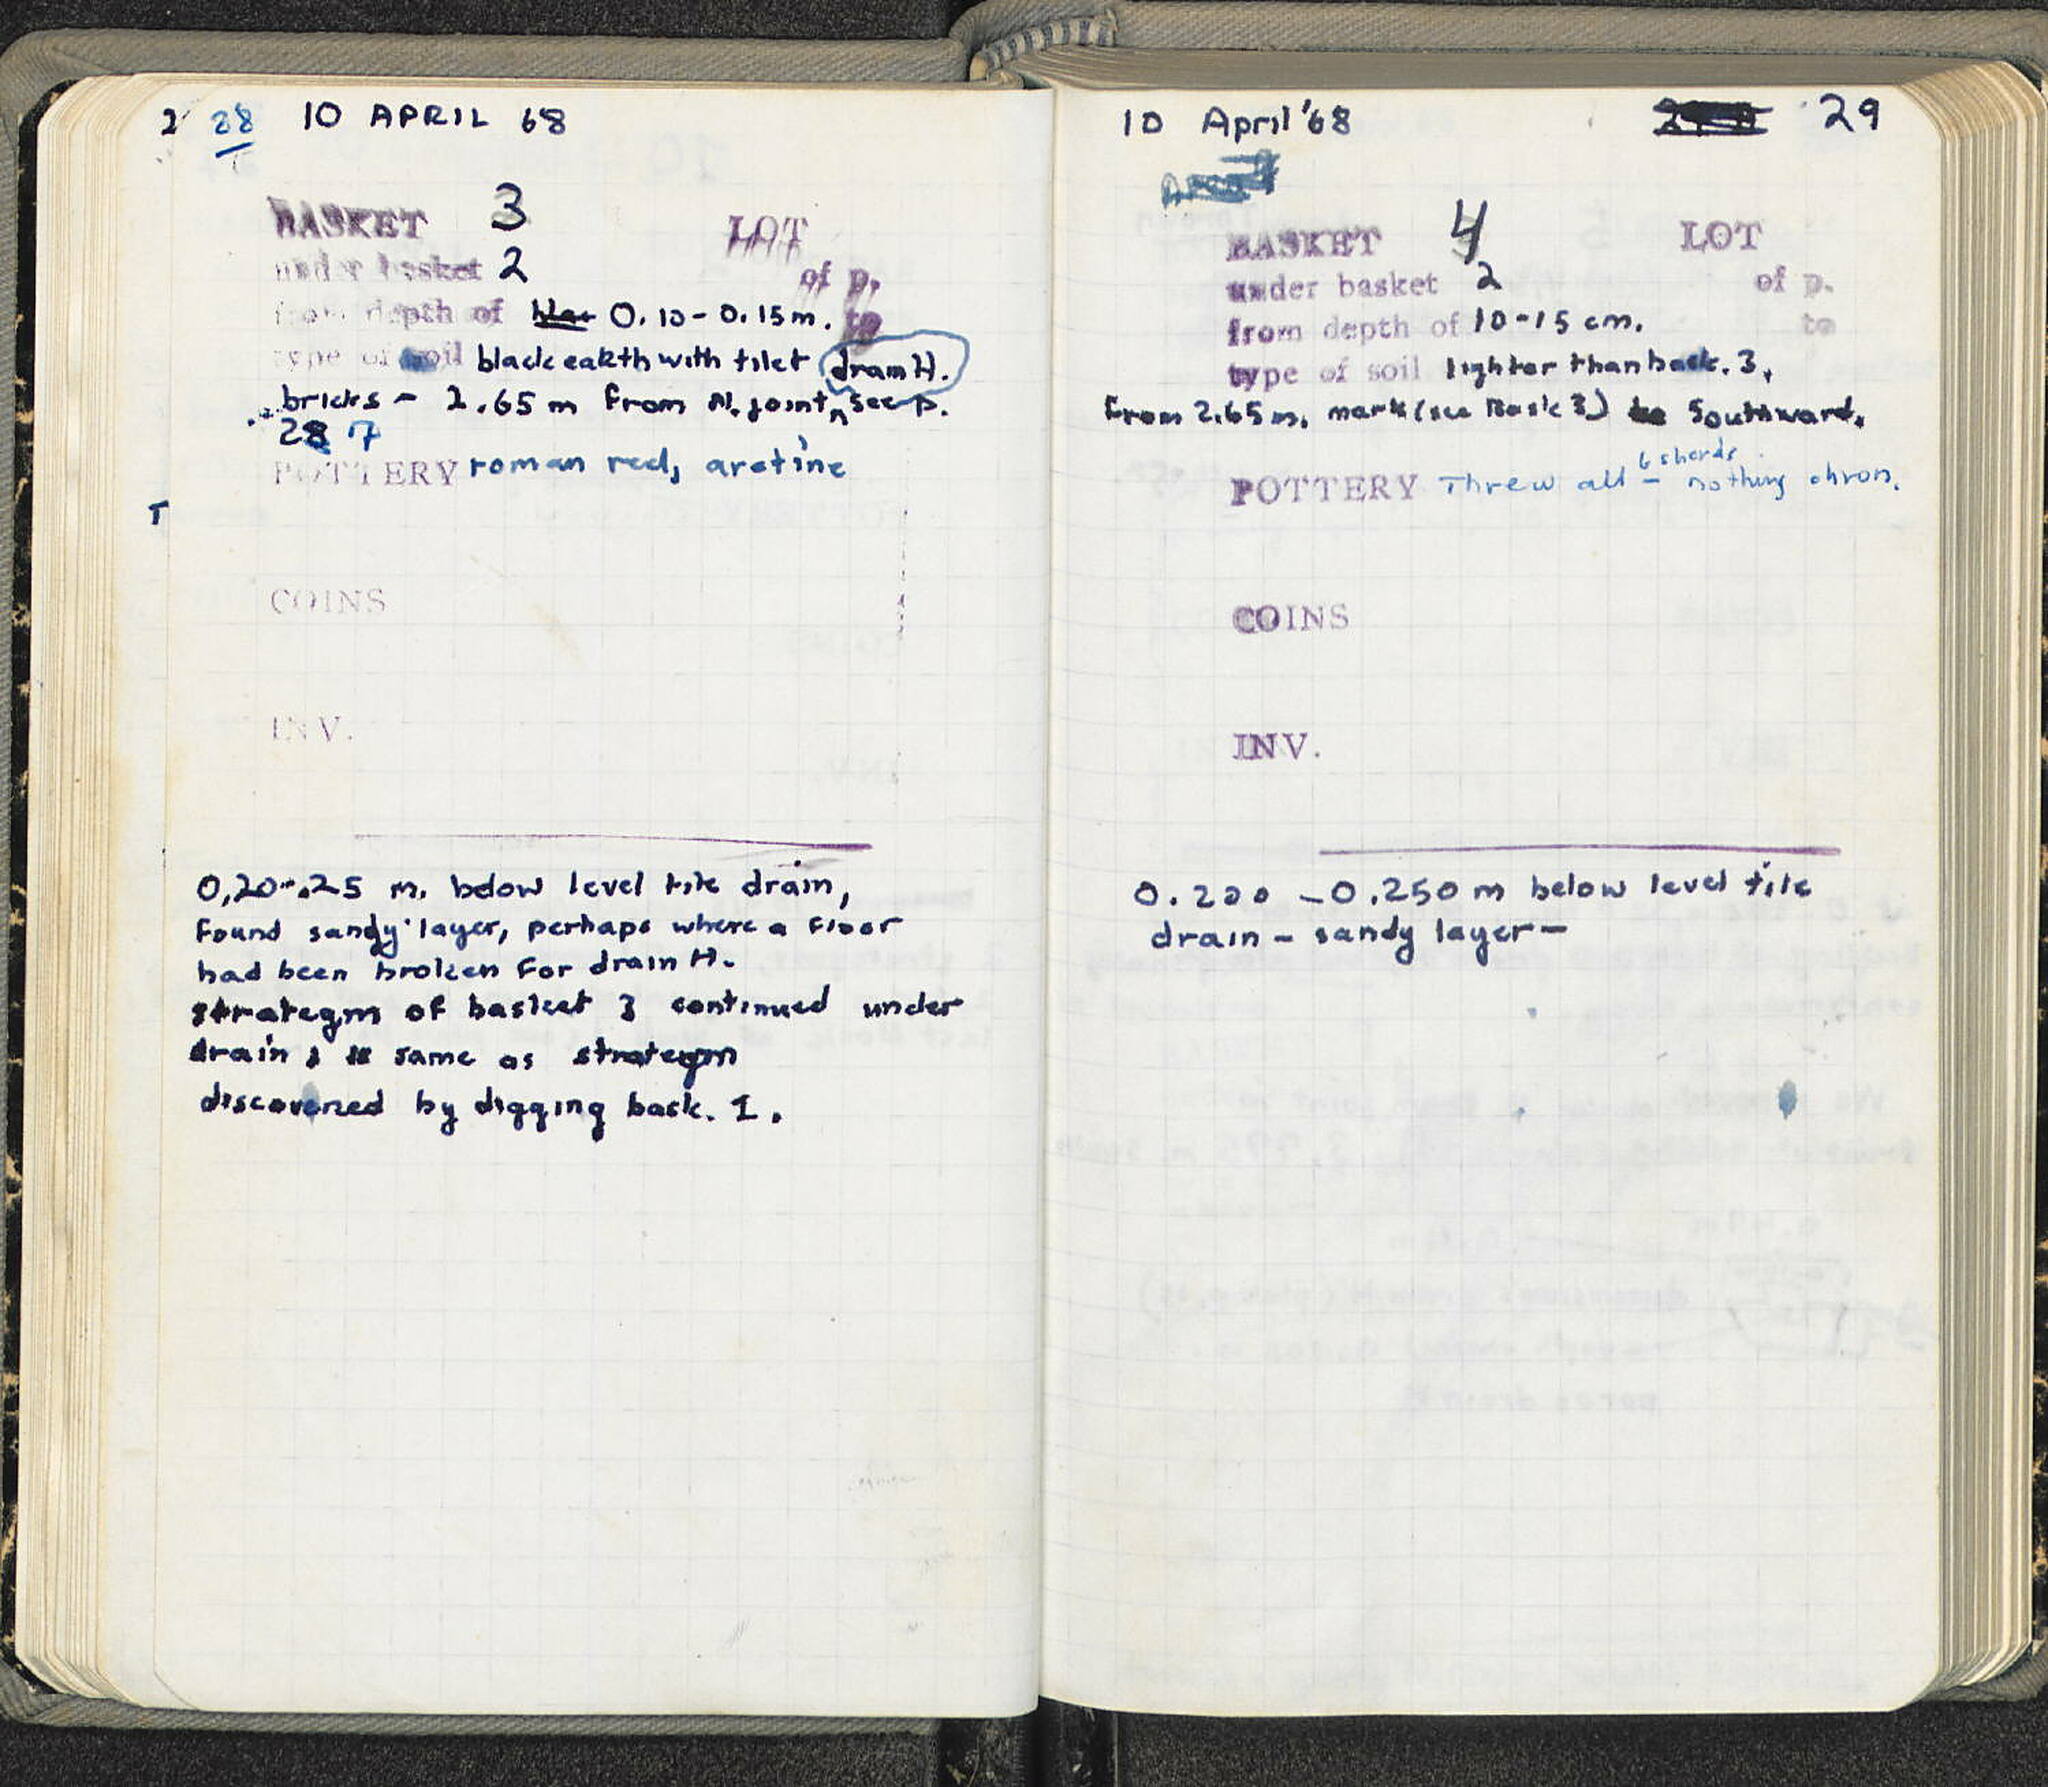 2 28 10 APRIL 68
BASKET 3 LOT
under basket 2 of p.
from depth of 0.10-0.15m. to
type of soil black eakth with tilet drain H.
bricks - 2.65 m from N. joint, see p.
28 7
POTTERY roman red, aretine
T
COINS
INV.
0,20-.25 m. below level tile drain,
Found sandy layer, perhaps where a Floor
had been broken For drain H.
strategm of basket 3 continued under
drain & is same as strategm
discovered by digging bask. 1.
10 April '68 29
BASKET 4 LOT
under basket 2 of p.
from depth of 10-15 cm. to
type of soil lighter than bask. 3,
From 2.65m. mark (see Bask 3) Southward.
6 sherds
POTTERY Threw all - nothing chron.
COINS
INV.
0.200 - 0.250 m below level tile
drain - sandy layer -